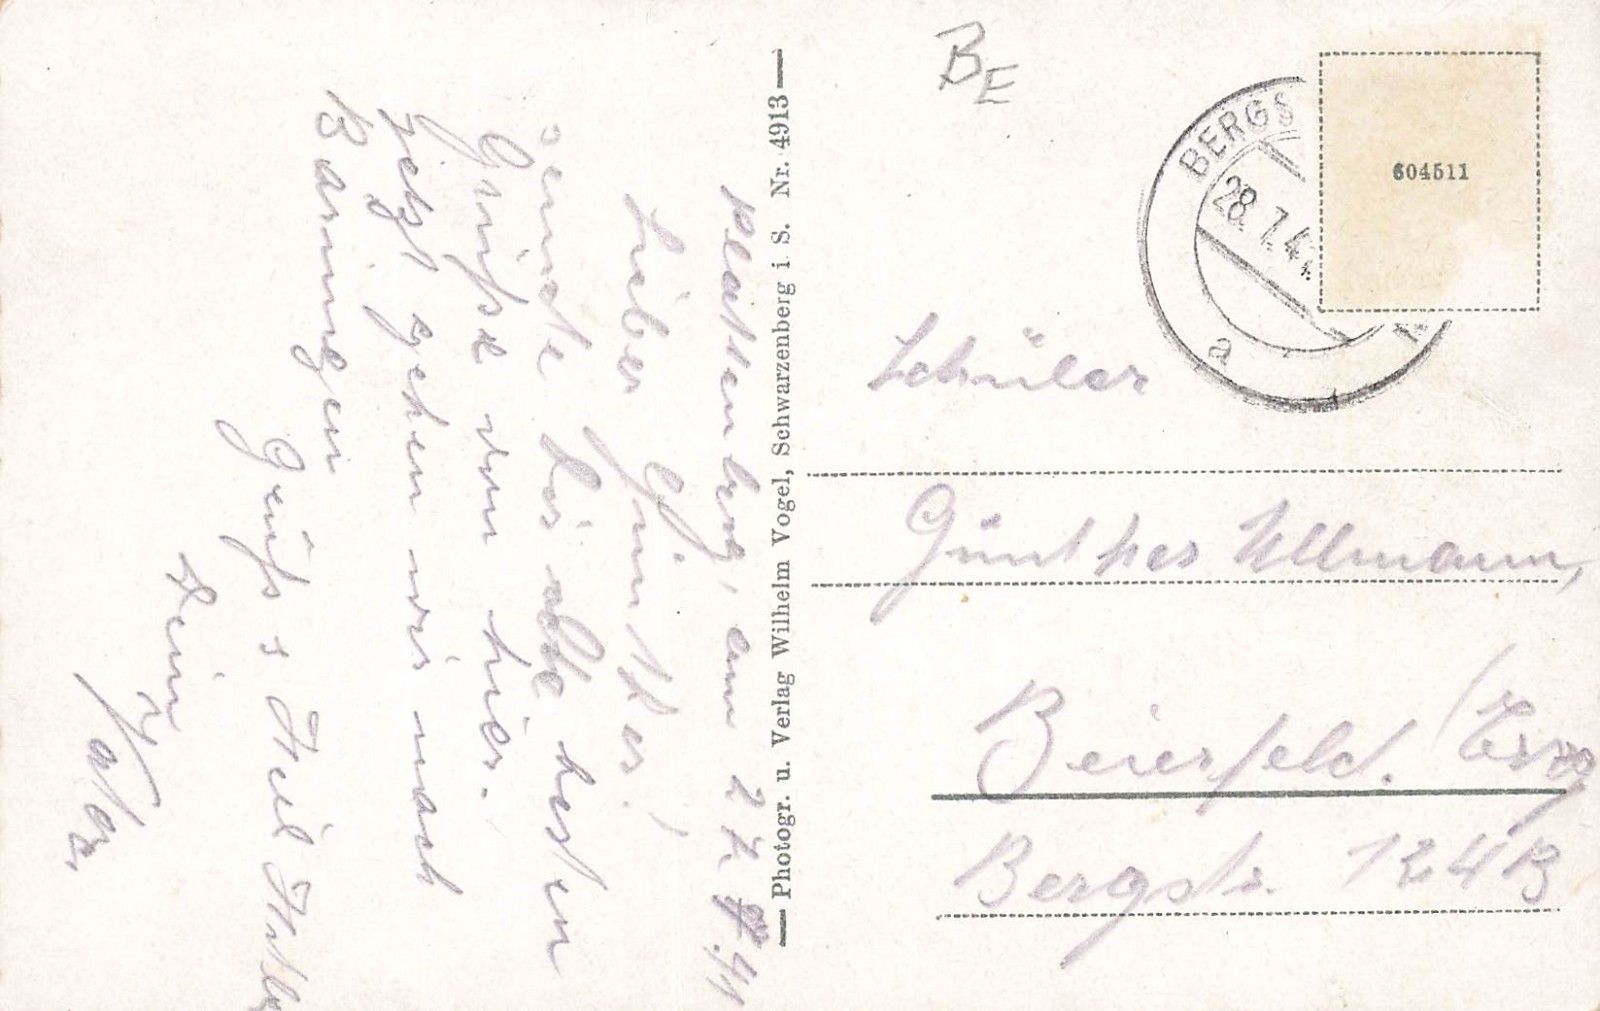 Plattenberg, am 27.7.41
Lieber Günther!
Sende dir die besten
Grüße von hier.
Jetzt gehen wir nach
Bärringen
Gruß u Heil Hitler
Dein Vater.
Photogr. u. Verlag Wilhelm Vogel, Schwarzenberg i. S. Nr. 4913
BE
BERGS
28.7.41
a
604511
Schüler
Günther Ullmann,
Beierfeld. /Erzg
Bergstr. 124B